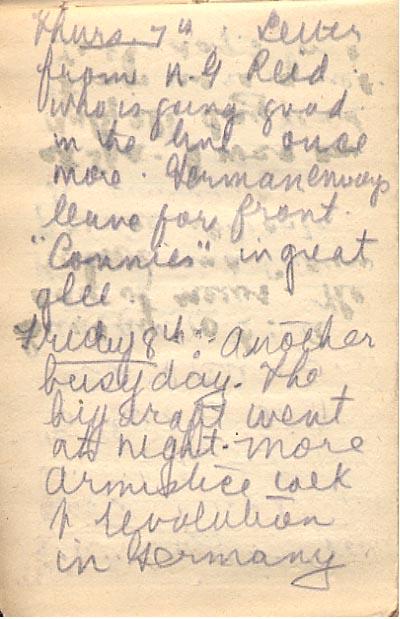 Thurs. 7th. Letter
from N. G Reid.
who is going good
in the line once
more. German envoys
leave for front.
"Connies" in great
glee
Friday 8th:- Another
busy day. The
big draft went
at night. More
armistice talk
& revolution
in Germany